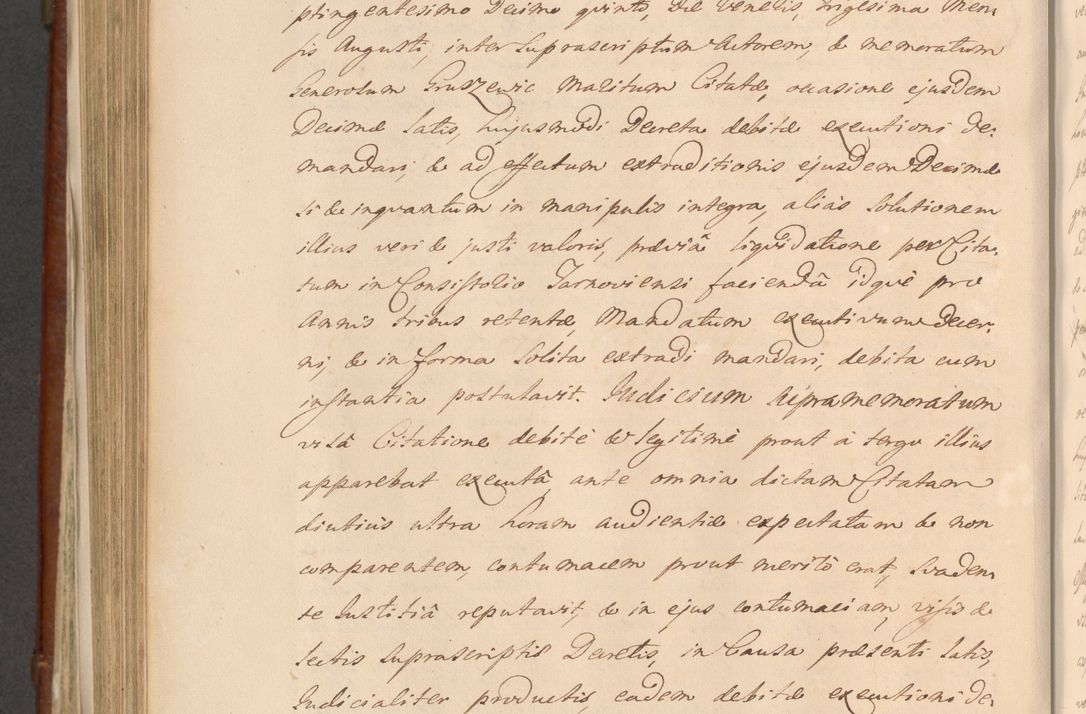 ptingentesimo Decimo quinto, Die Veneris, trigesima Men,
sis Augusti, inter Suprascriptum Actorem, & memoratum
Generosum Gruszewic Maritum Citatæ, occasione ejusdem
Decimæ Latis, hujusmodi Decreta debitæ executioni de,
mandari, & ad effectum extraditionis ejusdem Decimæ
si & inqvantum in manipulis integra, alias Solutionem
illius veri & justi valoris, præviâ liqvidatione per Cita,
tum in Consistorio Tarnoviensi faciendâ idqvè pro
Annis tribus retentæ, Mandatum executivum decer,
ni, & in forma solita extradi mandari, debita cum
instantia postulavit. Judicium supramemoratum
visâ Citatione debitè & legitimè prout à tergo illius
apparebat executâ, ante omnia dictam Citatam
diutius ultra horam audientiæ expectatam & non
comparentem, contumacem prout meritò erat, svaden,
te Justitiâ reputavit, & in ejus contumaciam, visis &
lectis Suprascriptis Decretis, in Causa præsenti Latis,
Judicialiter productis, eadem debitæ executioni de,